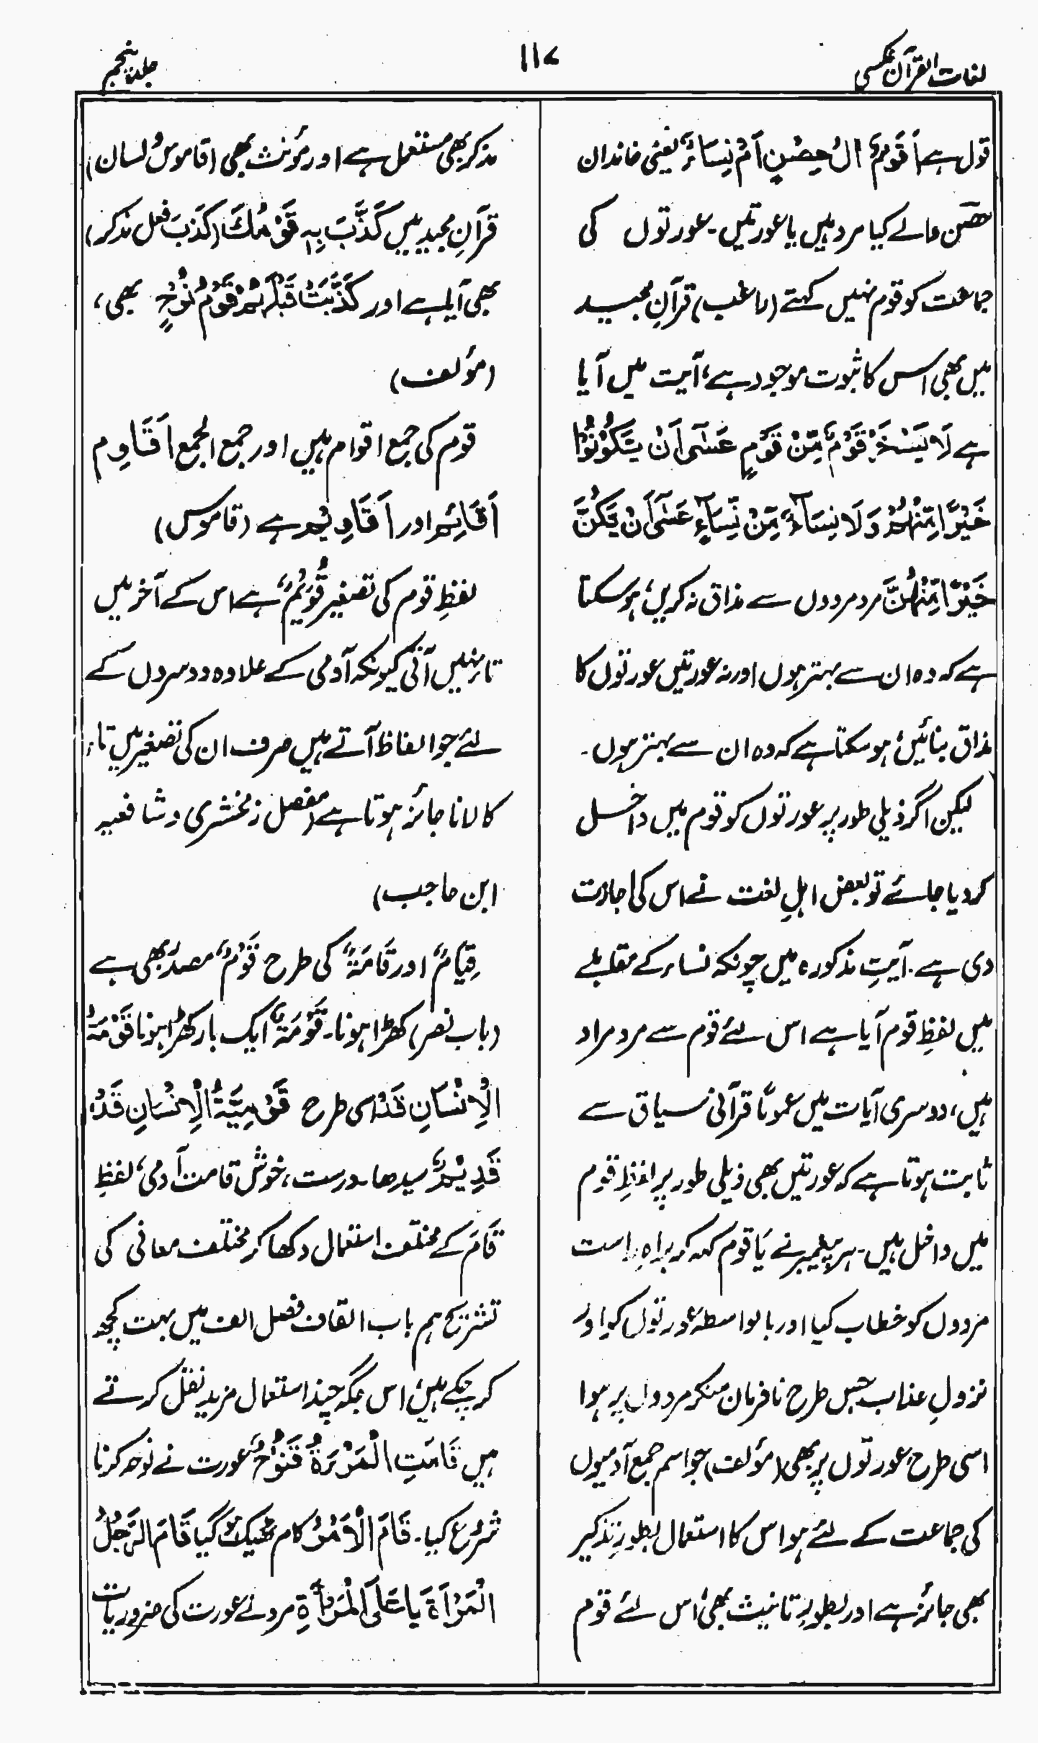 لغات القرآن عکسی
۱۱۷
جلد پنجم
قول ہے أَقَوْمٌ اٰلُ حِصْنٍ اَمْ نِسَاءٌ، یعنی خاندان
حصن والے کیا مرد ہیں یا عورتیں۔ عورتوں کی
جماعت کو قوم نہیں کہتے (راغب) قرآنِ مجید
میں بھی اس کا ثبوت موجود ہے، آیت میں آیا
ہے لَا یَسْخَرْ قَوْمٌ مِّنْ قَوْمٍ عَسٰۤی اَنْ یَّکُوْنُوْا
خَیْرًا مِّنْهُمْ وَلَا نِسَآءٌ مِّنْ نِّسَآءٍ عَسٰۤی اَنْ یَّکُنَّ
خَیْرًا مِّنْهُنَّ مرد مردوں سے مذاق نہ کریں، ہو سکتا
ہے کہ وہ ان سے بہتر ہوں اور نہ عورتیں عورتوں کا
مذاق بنائیں، ہو سکتا ہے کہ وہ ان سے بہتر ہوں۔
لیکن اگر ذیلی طور پر عورتوں کو قوم میں داخل
کر دیا جائے تو بعض اہلِ لغت نے اس کی اجازت
دی ہے۔ آیتِ مذکورہ میں چونکہ نساء کے مقابلے
میں لفظِ قوم آیا ہے اس لئے قوم سے مرد مراد
ہیں، دوسری آیات میں عموماً قرآنی سیاق سے
ثابت ہوتا ہے کہ عورتیں بھی ذیلی طور پر لفظِ قوم
میں داخل ہیں۔ ہر پیغمبر نے یَا قوم کہہ کر براہِ راست
مردوں کو خطاب کیا اور بالواسطہ عورتوں کو اور
نزولِ عذاب جس طرح نافرمان منکر مردوں پر ہوا
اسی طرح عورتوں پر بھی (مؤلف) جو اسم جمع آدمیوں
کی جماعت کے لئے ہو اس کا استعمال بطورِ تذکیر
بھی جائز ہے اور بطورِ تانیث بھی، اس لئے قوم
مذکر بھی مستعمل ہے اور مؤنث بھی (قاموس و لسان)
قرآنِ مجید میں کَذَّبَ بِہٖ قَوْمُكَ (کَذَّبَ فعل مذکر)
بھی آیا ہے اور کَذَّبَتْ قَبْلَهُمْ قَوْمُ نُوْحٍ بھی،
(مؤلف)
قوم کی جمع اقوام ہیں اور جمع الجمع اَقَاوِم
اَقَائِم اور اَقَاوِیْم ہے (قاموس)
لفظِ قوم کی تصغیر قُوَیْمٌ ہے اس کے آخر میں
تاء نہیں آتی کیونکہ آدمی کے علاوہ دوسروں کے
لئے جو الفاظ آتے ہیں صرف ان کی تصغیر میں تاء
کا لانا جائز ہوتا ہے (مفصل زمخشری و شافعیہ
ابن حاجب)
قِیَامٌ اور قَامَةٌ کی طرح قَوْمٌ مصدر بھی ہے
(باب نصر) کھڑا ہونا۔ قَوْمَةٌ ایک بار کھڑا ہونا قَوْمَةُ
الْاِنْسَانِ قَدُّہٗ اسی طرح قَوْمِیَّةُ الْاِنْسَانِ قَدُّہٗ
قَوِیْمٌ سیدھا۔ درست، خوش قامت آدمی، لفظِ
قَامَ کے مختلف استعمال دکھا کر مختلف معانی کی
تشریح ہم باب القاف فصل الف میں بہت کچھ
کر چکے ہیں، اس جگہ چند استعمال مزید نقل کرتے
ہیں قَامَتِ الْمَرْءَةُ تَنُوْحُ عورت نے نوحہ کرنا
شروع کیا۔ قَامَ الْاَمْرُ کام ٹھیک ہو گیا قَامَ الرَّجُلُ
الْمَرْاَةَ یا عَلَی الْمَرْأَةِ مرد نے عورت کی ضروریات